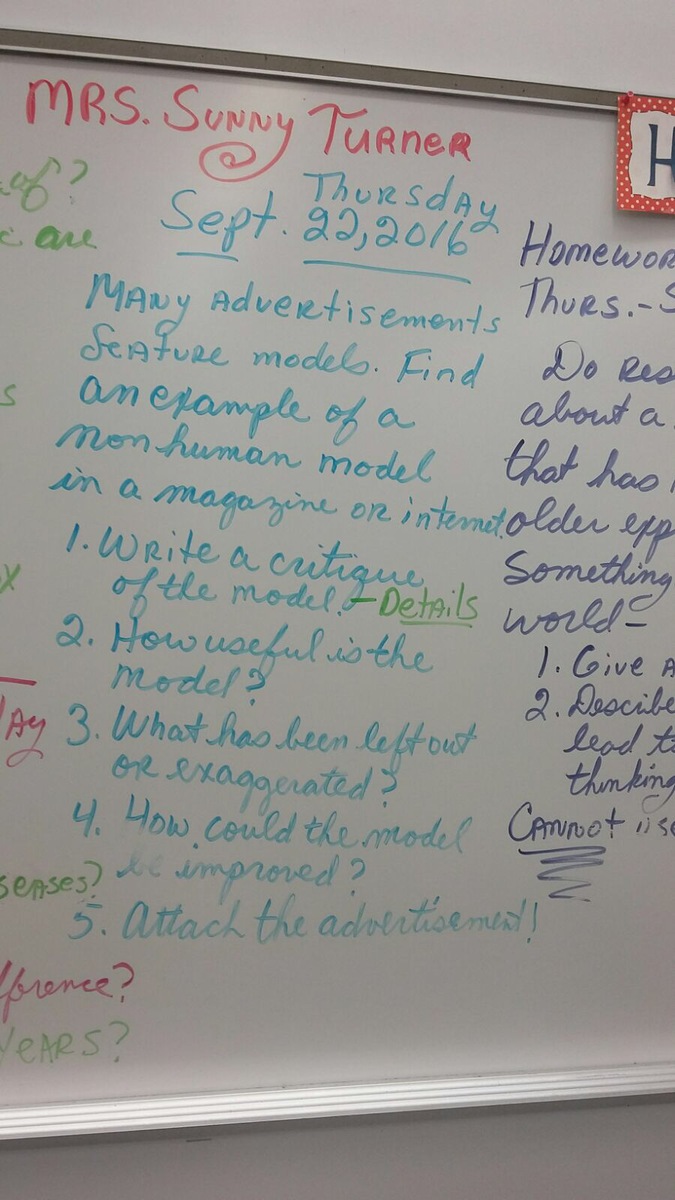 MRS. SUNNY TURNER
Thursday
Sept. 22, 2016
Many advertisements
feature models. Find
an example of a
nonhuman model
in a magazine or internet.
1. Write a critique
of the model. - Details
2. How useful is the
model?
3. What has been left out
or exaggerated?
4. How could the model
be improved?
5. Attach the advertisement!
of?
are
s
x
seases?
fference?
years?
H
Homewor
Thurs.-S
Do res
about a
that has
older exp
Something
world-
1. Give a
2. Describe
lead t
thinking
CANNOT use